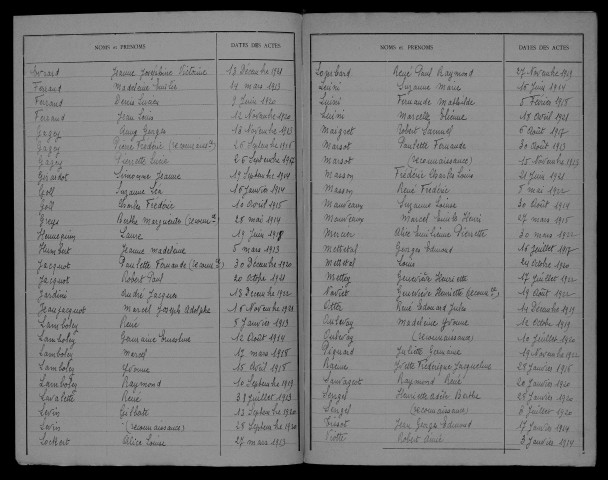 NOMS et PRÉNOMS DATES DES ACTES
Jeanne Joséphine Victorine 13 Décembre 1921
Ferrand Madeleine 14 mars 1913
Ferrand Denise 9 Juin 1920
Ferrand Jean Louis 12 Novembre 1920
Gagey Georges 13 Novembre 1913
Gagey Pierre Frédéric (reconnaisce) 26 Septembre
Gagey Pierrette 26 Septembre
Girardot Simonne Jeanne 19 Septembre 1914
Goll Suzanne Léa 16 Janvier 1914
Goll Charles Frédéric 10 Avril 1915
Greys Berthe Marguerite (reconnce) 28 mai 1914
Hennequin Laure 19 Juin 1918
Humbert Jeanne Madeleine 6 mars 1913
Jacquot Paulette Fernande (reconnce) 30 Décembre 1920
Jacquot Robert Paul 20 Octobre 1921
Jardini André Jacques 18 Décembre 1922
Jeanjacquot Marcel Joseph Adolphe 16 Novembre 1921
Lamboley René 8 Janvier 1913
Lamboley Germaine Ernestine 12 Août 1914
Lamboley Marcel 17 mars 1918
Lamboley Yvonne 15 Avril 1918
Lamboley Raymond 10 Septembre 1919
Lavalette René 31 Juillet 1913
Levin Gilberte 13 Septembre 1920
Levin (reconnaissance) 28 Septembre 1920
Lockert Alice Louise 27 mars 1913
NOMS et PRÉNOMS DATES DES ACTES
René Paul Raymond 27 Novembre 1919
Luini Suzanne Marie 16 Juin 1914
Luini Fernande Mathilde 5 Février 1918
Luini Marcelle 18 Avril 1921
Maigrot Robert Samuel 6 Août 1917
Marsot Paulette Fernande 30 Août 1913
Marsot (reconnaissance) 15 Novembre 1913
Masson Frédéric Charles Louis 21 Juin 1921
Masson René Frédéric 5 mai 1922
Mauveaux Suzanne Louise 30 Août 1914
Mauveaux Marcel Henri 27 mars 1915
Mercier Alice Pierrette 30 mars 1922
Mettetal Georges Edmond 16 Juillet 1917
Mettetal Louis 24 Octobre 1920
Mettey Geneviève Henriette 17 Juillet 1922
Geneviève Henriette (reconnce) 19 Août 1922
René Edouard Jules 11 Décembre 1919
Madeleine Yvonne 12 Octobre 1919
(reconnaissance) 10 Juillet 1920
Juliette Germaine 19 Novembre 1922
Racine Yvette Frédérique Jacqueline 28 Janvier 1916
Sauvageot Raymond René 20 Janvier 1920
Sengel Henriette Adèle Berthe 28 Janvier 1920
Sengel (reconnaissance) 6 Juillet 1920
Tissot Jean Georges Edmond 17 Janvier 1914
Viotte Robert Aimé 3 Janvier 1914